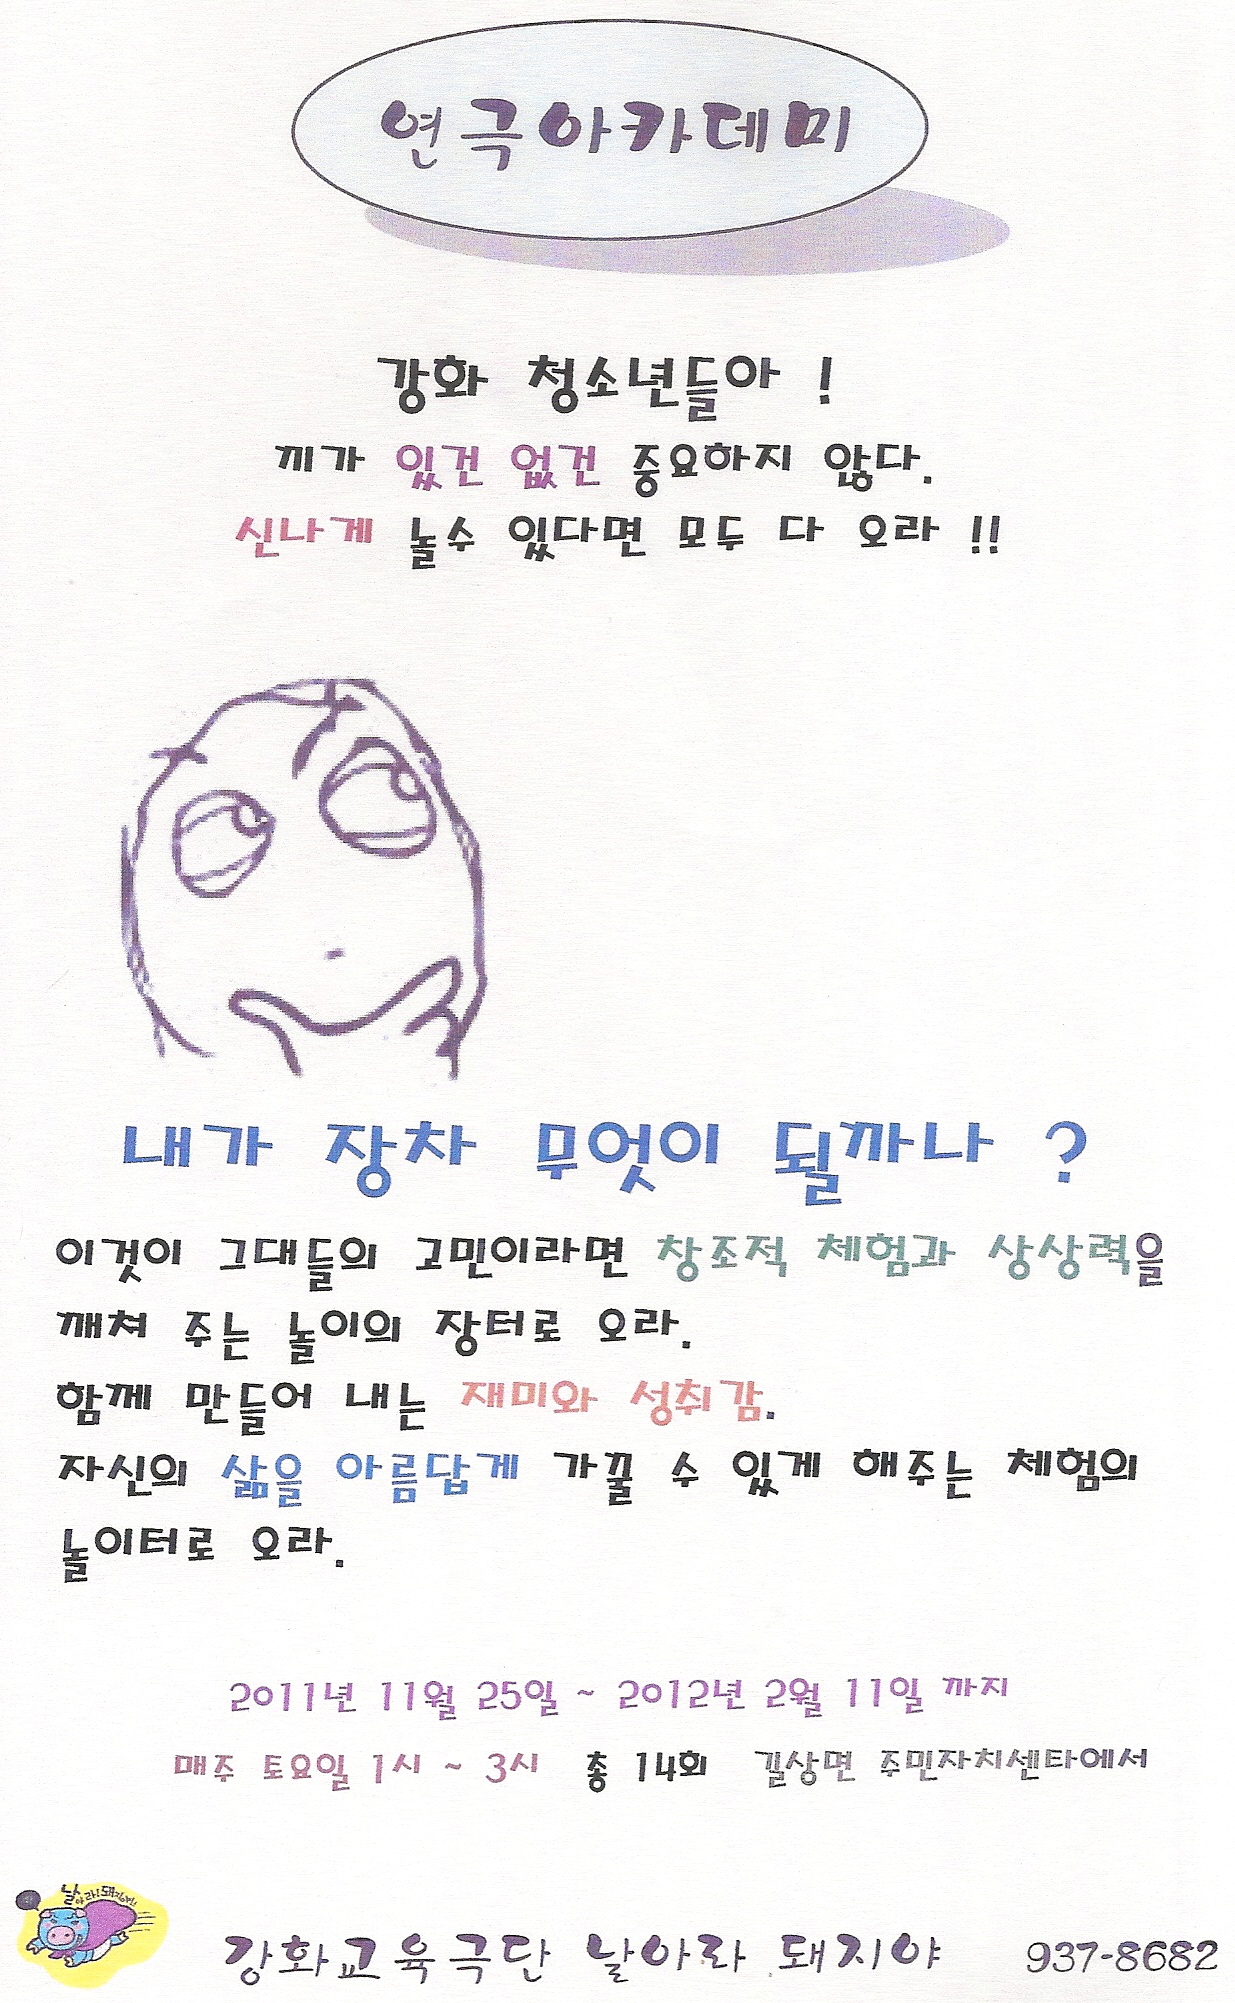 연극아카데미
강화 청소년들아 !
끼가 있건 없건 중요하지 않다.
신나게 놀수 있다면 모두 다 오라 !!
내가 장차 무엇이 될까나 ?
이것이 그대들의 고민이라면 창조적 체험과 상상력을
깨쳐 주는 놀이의 장터로 오라.
함께 만들어 내는 재미와 성취감.
자신의 삶을 아름답게 가꿀 수 있게 해주는 체험의
놀이터로 오라.
2011년 11월 25일 ~ 2012년 2월 11일 까지
매주 토요일 1시 ~ 3시 총 14회 길상면 주민자치센타에서
날아라!돼지야!
강화교육극단 날아라 돼지야 937-8682